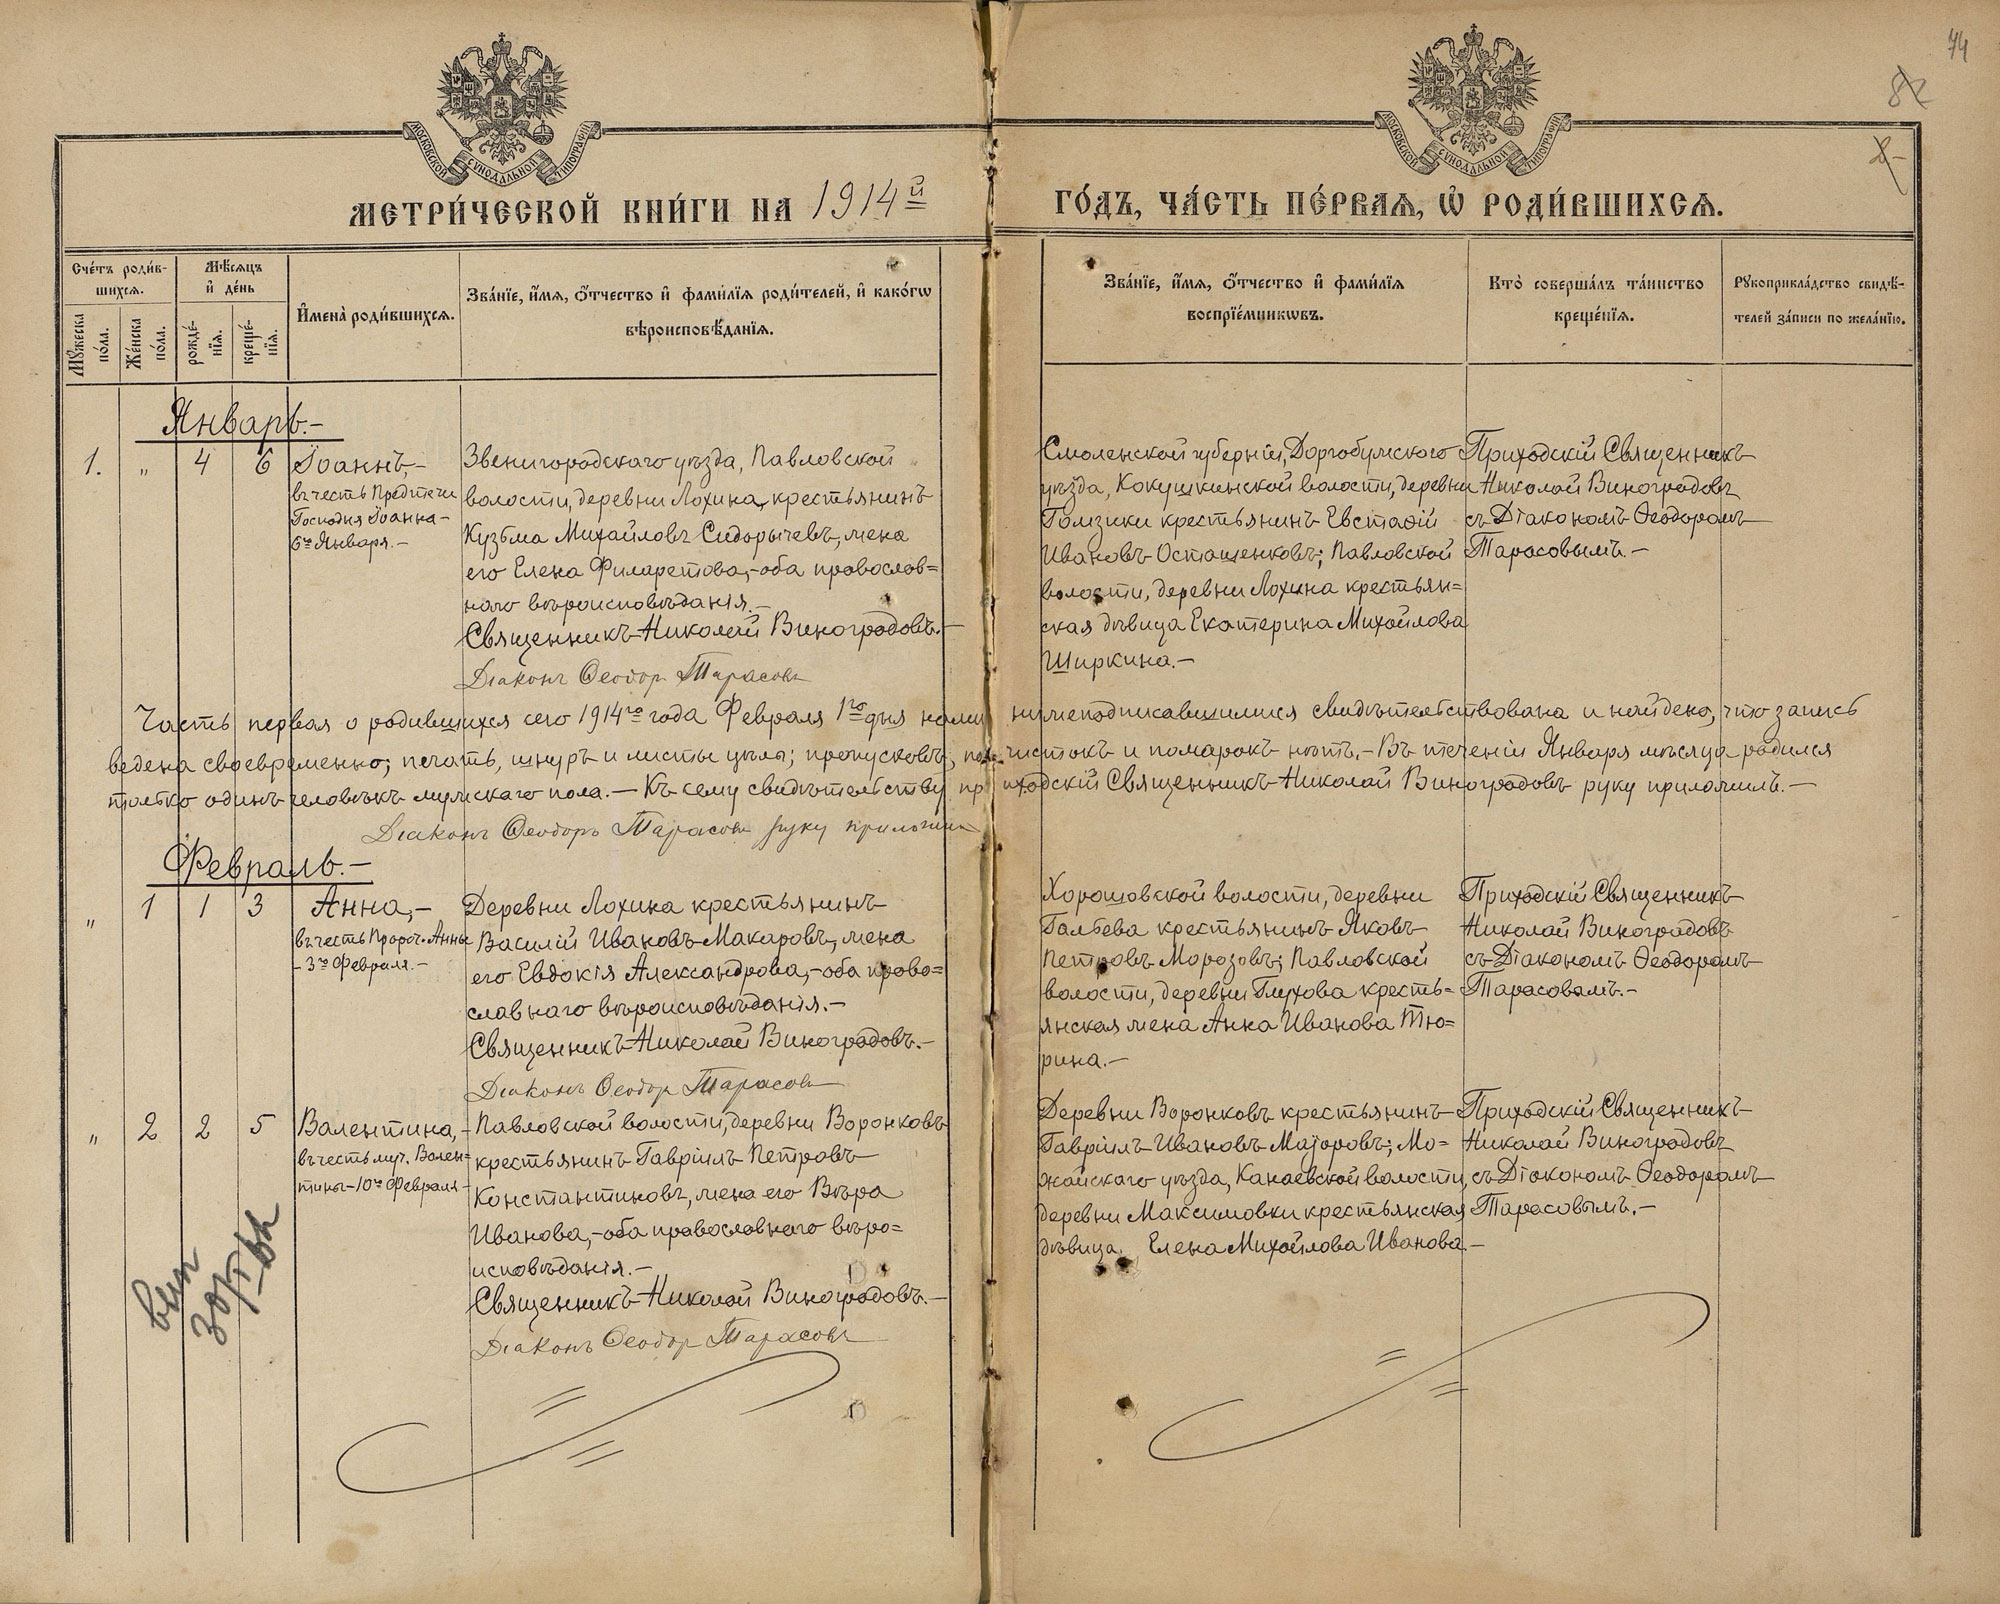 74
82
МОСКОВСКОЙ СѴНОДАЛЬНОЙ ТИПОГРАФІИ
МОСКОВСКОЙ СѴНОДАЛЬНОЙ ТИПОГРАФІИ
МЕТРИ́ЧЕСКОЙ КНИ́ГИ НА 1914й ГО́ДЪ, ЧА́СТЬ ПЕ́РВАЯ, Ѡ҆ РОДИ́ВШИХСЯ.
Сче́тъ роди́в-
шихся.
Мѣ́сяцъ
и҆ де́нь
Мꙋ́жеска по́ла.
Же́нска по́ла.
рожде́-
нїя.
креще́-
нїя.
И҆мена̀ роди́вшихся.
Зва́нїе, и҆́мя, ѻ҆́тчество и҆ фами́лїя роди́телей, и҆ како́гѡ
вѣроисповѣ́данїя.
Зва́нїе, и҆́мя, ѻ҆́тчество и҆ фами́лїя
воспрїе́мникѡвъ.
Кто̀ соверша́лъ та́инство
креще́нїя.
Рꙋкоприкла́дство свидѣ́-
телей за́писи по жела́нїю.
Январь.-
1. " 4 6
Іоаннъ,-
въ честь Предтечи
Господня Іоанна-
6го Января.-
Звенигородскаго уѣзда, Павловской
волости, деревни Лохина, крестьянинъ
Кузьма Михайловъ Сидорычевъ, жена
его Елена Филаретова,-оба православ=
наго вѣроисповѣданія.-
Священникъ Николай Виноградовъ.-
Діаконъ Ѳеодоръ Тарасовъ
Смоленской губерніи, Дорогобужскаго
уѣзда, Кокушкинской волости, деревни
Гомзики крестьянинъ Евстафій
Ивановъ Осташенковъ; Павловской
волости, деревни Лохина крестьян=
ская дѣвица Екатерина Михайлова
Ширкина.-
Приходскій Священникъ
Николай Виноградовъ
съ Діакономъ Ѳеодоромъ
Тарасовымъ.-
Часть первая о родившихся сего 1914го года Февраля 1го дня нами нижеподписавшимися свидѣтельствована и найдено, что запись
ведена своевременно; печать, шнуръ и листы цѣлы; пропусковъ, подчистокъ и помарокъ нѣтъ.- Въ теченіи Января мѣсяца родился
только одинъ человѣкъ мужскаго пола.- Къ сему свидѣтельству приходскій Священникъ Николай Виноградовъ руку приложилъ.-
Діаконъ Ѳеодоръ Тарасовъ руку приложилъ
Февраль.-
" 1 1 3
Анна,-
въ честь Прор. Анны
- 3го Февраля.-
Деревни Лохина крестьянинъ
Василій Ивановъ Макаровъ, жена
его Евдокія Александрова,-оба право=
славнаго вѣроисповѣданія.-
Священникъ Николай Виноградовъ.-
Діаконъ Ѳеодоръ Тарасовъ
Хорошовской волости, деревни
Гальева крестьянинъ Яковъ
Петровъ Морозовъ; Павловской
волости, деревни Глухова кресть=
янская жена Анна Иванова Тю=
рина.-
Приходскій Священникъ
Николай Виноградовъ
съ Діакономъ Ѳеодоромъ
Тарасовымъ.-
" 2 2 5
Валентина,-
въ честь муч. Вален=
тины-10го Февраля-
Павловской волости, деревни Воронковъ
крестьянинъ Гавріилъ Петровъ
Константиновъ, жена его Вѣра
Иванова,-оба православнаго вѣро=
исповѣданія.-
Священникъ Николай Виноградовъ.-
Діаконъ Ѳеодоръ Тарасовъ
Деревни Воронковъ крестьянинъ
Гавріилъ Ивановъ Маіоровъ; Мо=
жайскаго уѣзда, Канаевской волости,
деревни Максимовки крестьянская
дѣвица Елена Михайлова Иванова.-
Приходскій Священникъ
Николай Виноградовъ
съ Діакономъ Ѳеодоромъ
Тарасовымъ.-